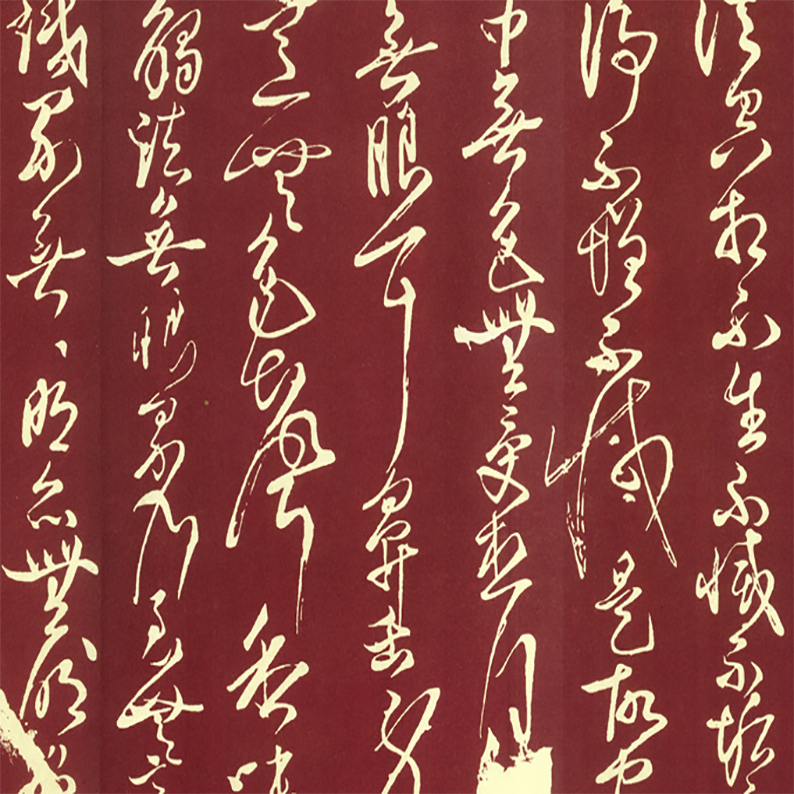 法空相不生不滅不垢
淨不增不減是故空
中無色無受想行
無眼耳鼻舌身
意無色聲香味
觸法無眼界乃至無意
識界無、明亦無明盡